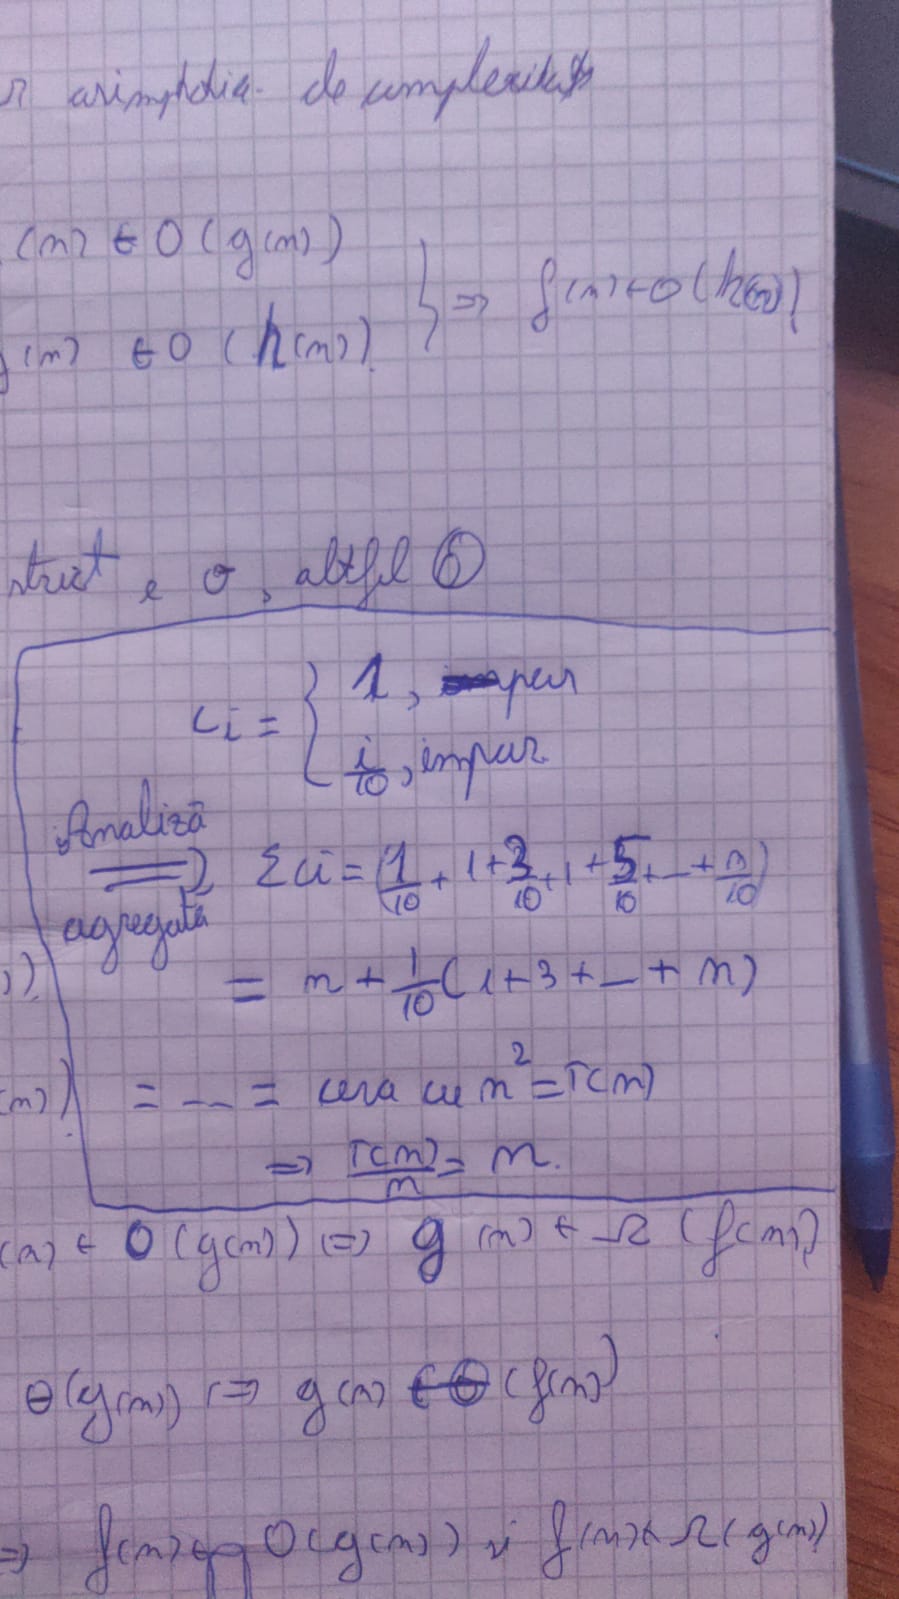 asimptotic de complexitate
(n) ∈ O(g(n))
g(n) ∈ O(h(n)) } ⇒ f(n) ∈ O(h(n))
strict e o, altfel O
c_i = { 1, par
i/10, impar
Analiză agregată ⇒ Σci = (1/10 + 1 + 3/10 + 1 + 5/10 + ... + n/10)
= n + 1/10 (1 + 3 + ... + n)
(n)) = ... = ceva cu n² = T(n)
⇒ T(n)/n = n.
(n) ∈ O(g(n)) ⇔ g(n) ∈ Ω(f(n))
Θ(g(n)) ⇔ g(n) ∈ Θ(f(n))
⇒ f(n) ∈ O(g(n)) și f(n) ∈ Ω(g(n))